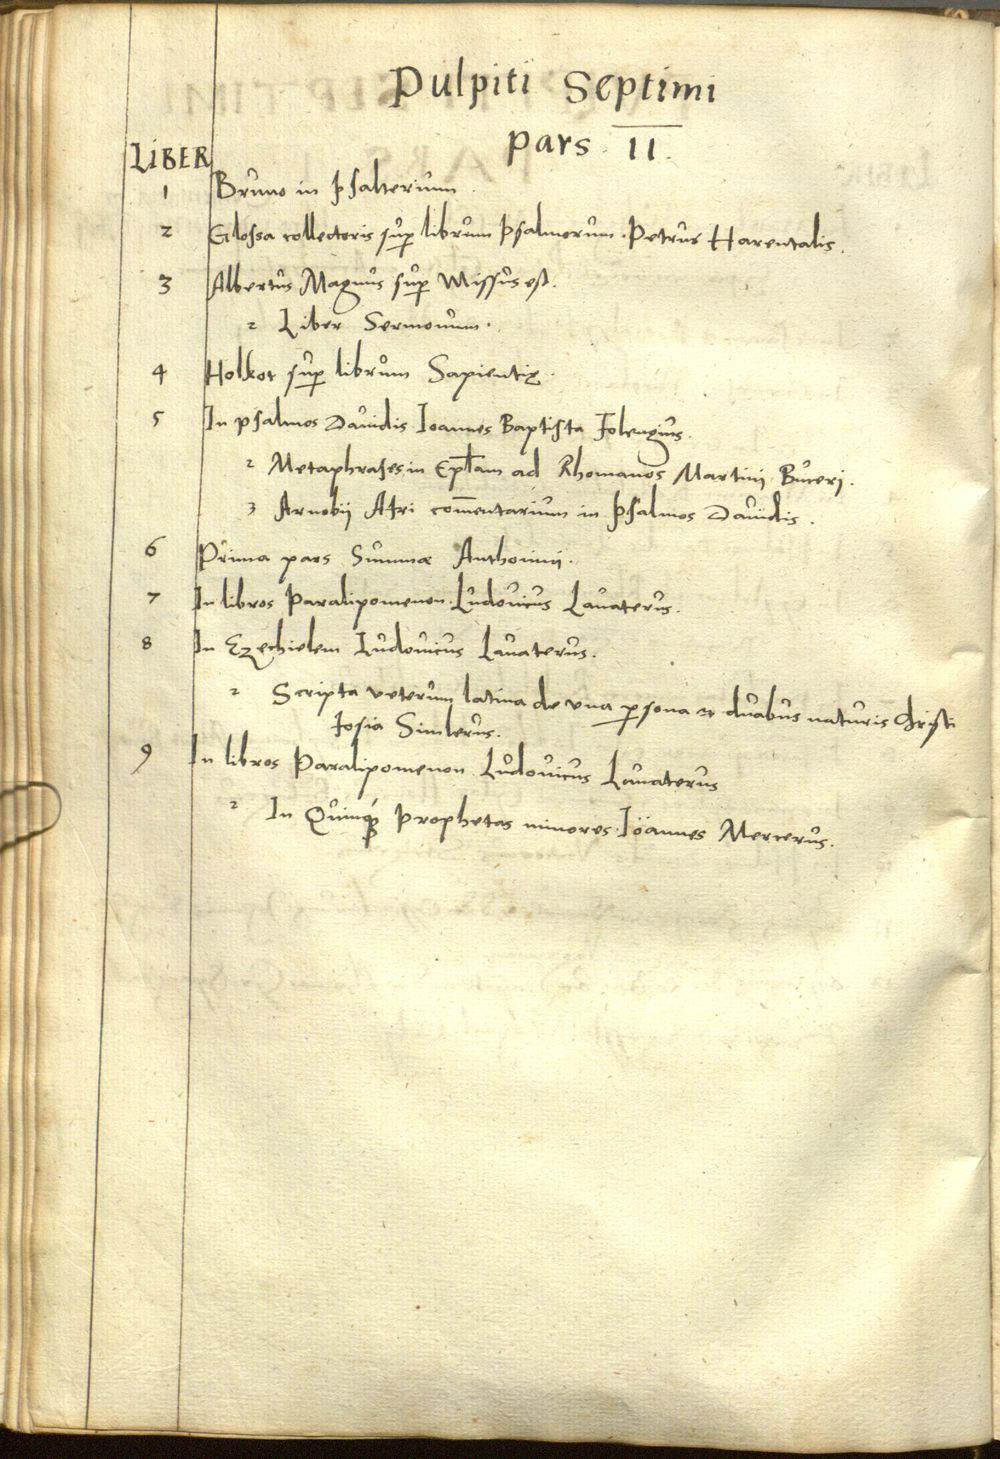 Pulpiti Septimi
pars II.
LIBER
1 Bruno in psalterium.
2 Glossa collectoris sup librum psalmorum. Petrus Harentalis.
3 Albertus Magnus sup Missus est.
2 Liber Sermonum.
4 Holkot sup librum Sapientię.
5 In psalmos Dauidis Ioannes Baptista Folengius.
2 Metaphrases in Eplam ad Rhomanos Martinij Buceri.
3 Arnobij Afri comentarium in psalmos Dauidis.
6 Prima pars Summæ Anthonini.
7 In libros Paralipomenon. Ludouicus Lauaterus.
8 In Ezechielem Ludouicus Lauaterus.
2 Scripta veterum latina de vna psona & duabus naturis Christi
Iosia Simlerus.
9 In libros Paralipomenon Ludouicus Lauaterus
2 In Quinq prophetas minores. Ioannes Mercerus.